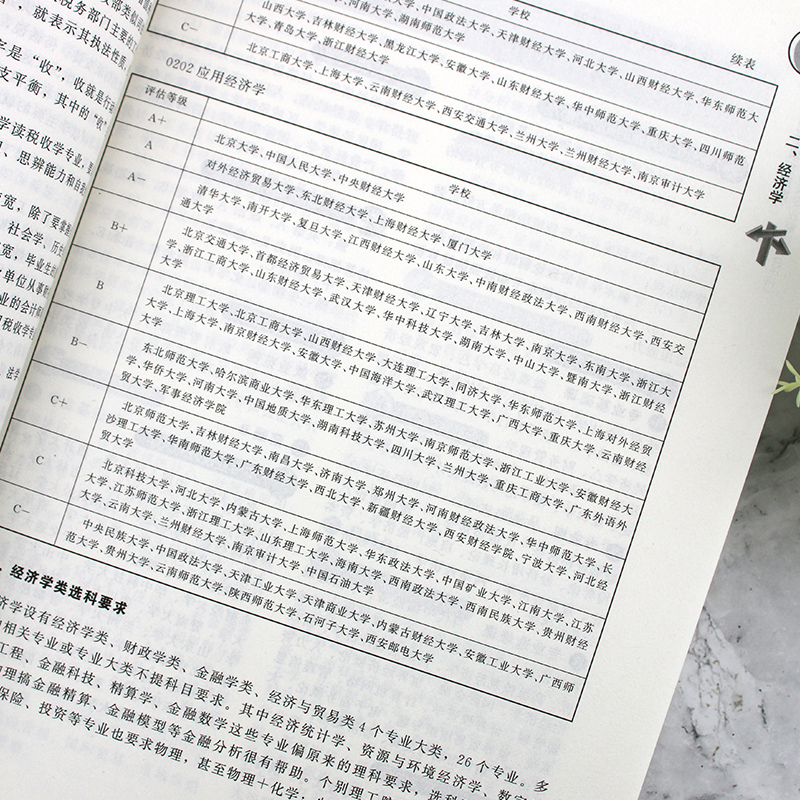 部类似
税务部门主要的工
就表示其执法性质,
是“收”,收就是行动
支平衡,其中的“收”
学读税收学专业,要
思辨能力和自我
宽,除了要掌握
社会学、历史
宽,毕业生
单位从事
业的会计
税收学专
法学
学校
续表
河南大学、中国政法大学、天津财经大学、河北大学、山西财经大学、华东师范大
学、湖南师范大学
C-
山西大学、吉林财经大学、黑龙江大学、安徽大学、山东财经大学、华中师范大学、重庆大学、四川师范
大学、青岛大学、浙江财经大学
北京工商大学、上海大学、云南财经大学、西安交通大学、兰州大学、兰州财经大学、南京审计大学
0202 应用经济学
评估等级
学校
A+
北京大学、中国人民大学、中央财经大学
A
对外经济贸易大学、东北财经大学、上海财经大学、厦门大学
A-
清华大学、南开大学、复旦大学、江西财经大学、山东大学、中南财经政法大学、西南财经大学、西安交
通大学
B+
北京交通大学、首都经济贸易大学、天津财经大学、辽宁大学、吉林大学、南京大学、东南大学、浙江大
学、浙江工商大学、山东财经大学、武汉大学、华中科技大学、湖南大学、中山大学、暨南大学、浙江财经
大学
B
北京理工大学、北京工商大学、山西财经大学、大连理工大学、同济大学、华东师范大学、上海对外经贸
大学、上海大学、南京财经大学、安徽大学、中国海洋大学、武汉理工大学、广西大学、重庆大学、云南财经
大学
B-
东北师范大学、哈尔滨商业大学、华东理工大学、苏州大学、南京师范大学、浙江工业大学、安徽财经大
学、华侨大学、河南大学、中国地质大学、湖南科技大学、四川大学、兰州大学、重庆工商大学、广东外语外
贸大学、军事经济学院
C+
北京师范大学、吉林财经大学、南昌大学、济南大学、郑州大学、河南财经政法大学、华中师范大学、长
沙理工大学、华南师范大学、广东财经大学、西北大学、新疆财经大学、西安财经学院、宁波大学、河北经
贸大学
C
北京科技大学、河北大学、内蒙古大学、上海师范大学、华东政法大学、中国矿业大学、江南大学、江苏
大学、江苏师范大学、浙江理工大学、山东理工大学、海南大学、西南政法大学、西南民族大学、贵州财经
大学、云南大学、兰州财经大学、南京审计大学、中国石油大学
C-
中央民族大学、中国政法大学、天津工业大学、天津商业大学、内蒙古财经大学、安徽工业大学、广西师
范大学、贵州大学、云南师范大学、陕西师范大学、石河子大学、西安邮电大学
经济学类选科要求
济学设有经济学类、财政学类、金融学类、经济与贸易类4个专业大类,26个专业。多
相关专业或专业大类不提科目要求。其中经济统计学、资源与环境经济学、数字
工程、金融科技、精算学、金融数学这些专业偏原来的理科要求,选科
理搞金融精算、金融模型等金融分析很有帮助。个别理工
保险、投资等专业也要求物理,甚至物理+化学,
二、经济学